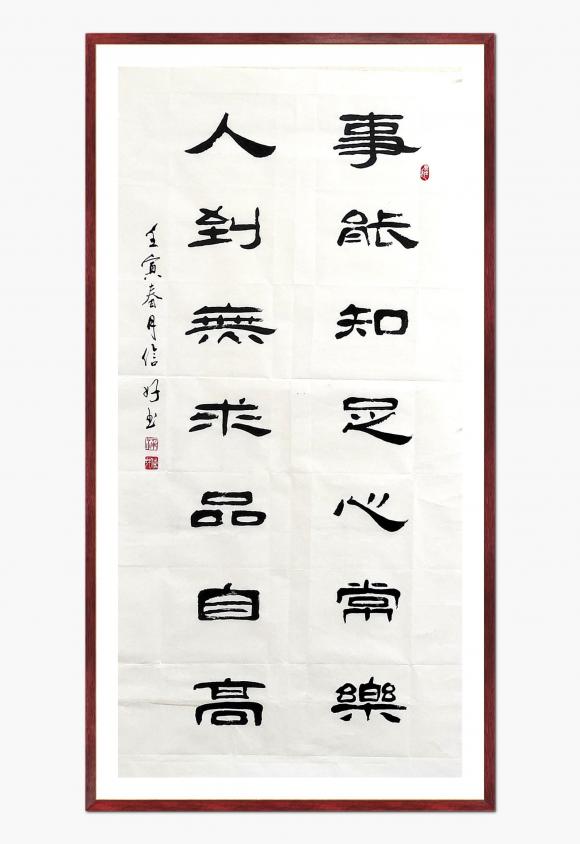 事能知足心常樂
人到無求品自高
壬寅春月信好书